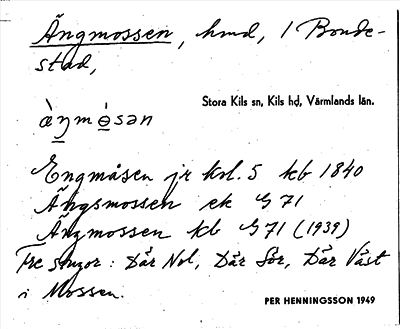 Ängmossen, hmd, 1 Bonde-
stad,
Stora Kils sn, Kils hd, Värmlands län.
àŋmósən
Engmåsen jr krl. 5 kb 1840
Ängsmossen ek G 71
Ängmossen kb G 71 (1939)
Tre stugor: Där Nol, Där Sör, Där Väst
i Mossen.
PER HENNINGSSON 1949